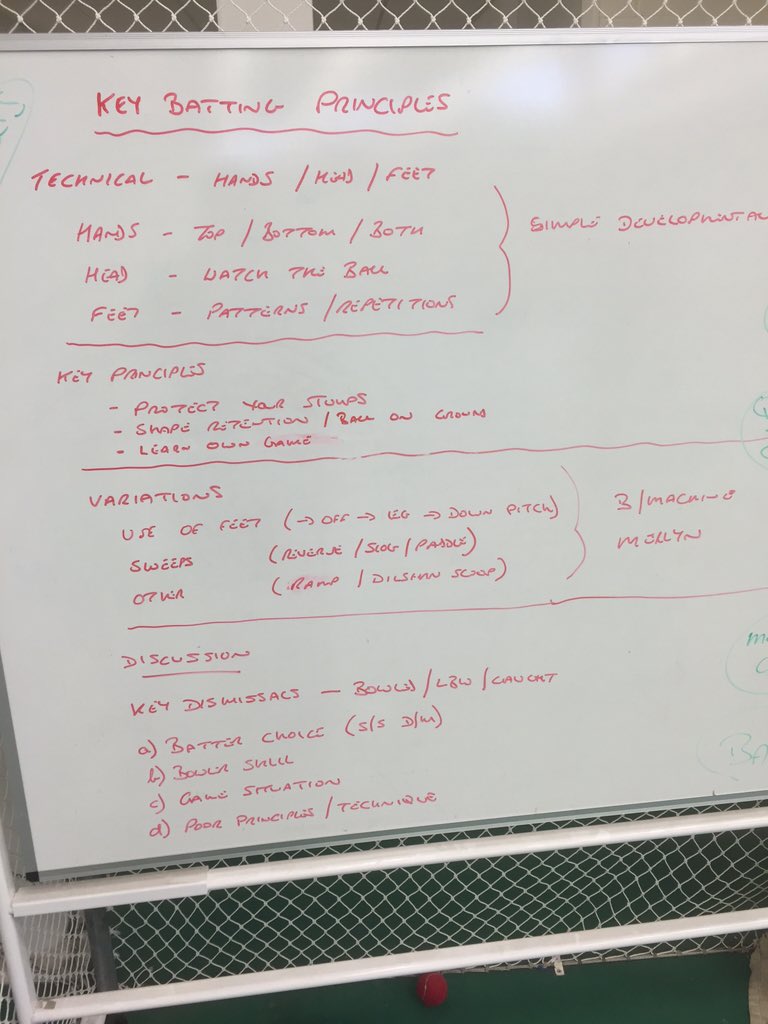 KEY BATTING PRINCIPLES
TECHNICAL - HANDS / HEAD / FEET
HANDS - TOP / BOTTOM / BOTH
HEAD - WATCH THE BALL
FEET - PATTERNS / REPETITIONS
SIMPLE DEVELOPMENTAL
KEY PRINCIPLES
- PROTECT YOUR STUMPS
- SHAPE RETENTION / BALL ON GROUND
- LEARN OWN GAME
VARIATIONS
USE OF FEET (→ OFF → LEG → DOWN PITCH)
SWEEPS (REVERSE / SLOG / PADDLE)
OTHER (RAMP / DILSHAN SCOOP)
B/MACHINE
MERLYN
DISCUSSION
KEY DISMISSALS - BOWLED / LBW / CAUGHT
a) BATTER CHOICE (S/S D/M)
b) BOWLER SKILL
c) GAME SITUATION
d) POOR PRINCIPLES / TECHNIQUE